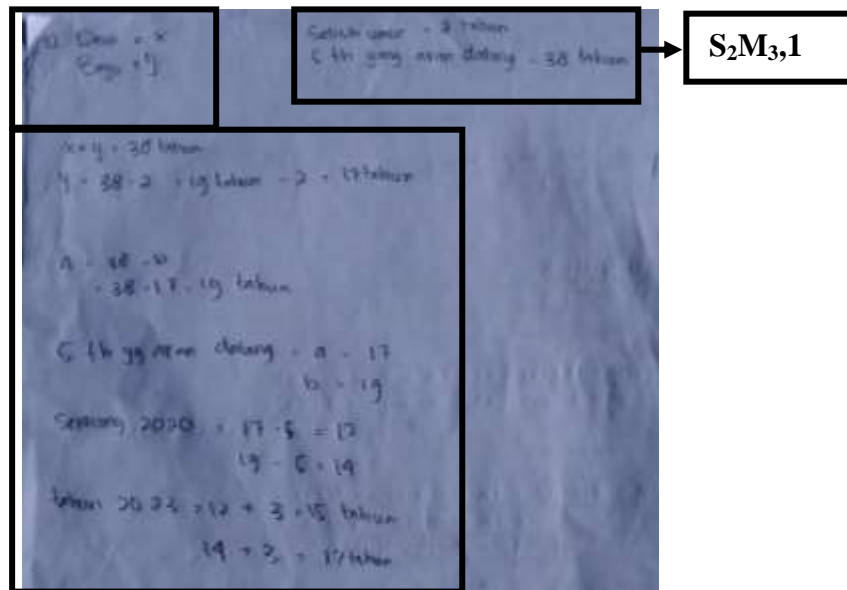 = x
= y
Selisih umur = 2 tahun
5 th yang akan datang = 38 tahun
S₂M₃,1
x + y = 38 tahun
y = 38 - 2 = 19 tahun - 2 = 17 tahun
= 38 - 17 = 19 tahun
5 th yg akan datang = a = 17
b = 19
2020 = 17 - 5 = 12
19 - 5 = 14
tahun 2023 = 12 + 3 = 15 tahun
14 + 3 = 17 tahun